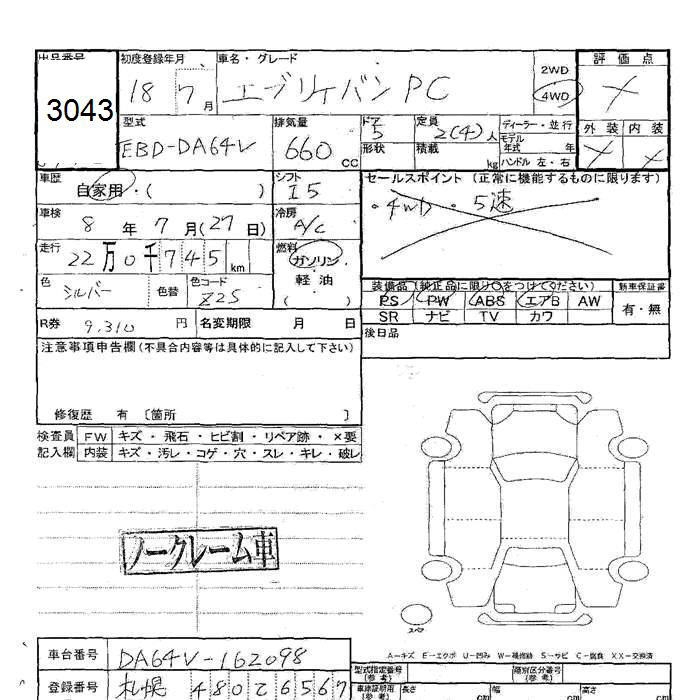 出品番号 初度登録年月 車名・グレード 評価点
3043 18 7月 エブリイバン PC 2WD 4WD
型式 排気量 ドア 定員 ディーラー・並行 外装 内装
EBD-DA64V 660 CC 5 2(4)人 モデル年式 年
形状 積載 kg ハンドル 左・右
車歴 自家用・( ) シフト I5 セールスポイント (正常に機能するものに限ります)
・4WD ・5速
車検 8年 7月(27日) 冷房 A/C
走行 22万0千745km 燃料 ガソリン
軽油
( )
色 シルバー 色替 色コード Z2S
装備品(純正品に限り○をつけてください) 新車保証書
PS PW ABS エアB AW 有・無
SR ナビ TV カワ
R券 9,310円 名変期限 月 日 後日品
注意事項申告欄(不具合内容等は具体的に記入して下さい)
修復歴 有 〔箇所 〕
検査員 FW キズ・飛石・ヒビ割・リペア跡・×要
記入欄 内装 キズ・汚レ・コゲ・穴・スレ・キレ・破レ
ノークレーム車
スペア
A-キズ E-エクボ U-凹み W-補修跡 S-サビ C-腐食 XX-交換済
車台番号 DA64V-162098 型式指定番号(参考) 類別区分番号(参考)
登録番号 札幌 480 て 6567 車庫証明用(参考) 長さ cm 幅 cm 高さ cm